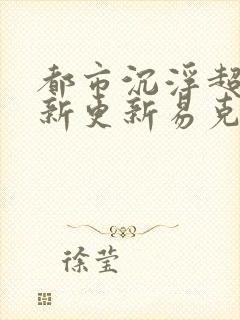 都市沉浮超
新更新易克
徐莹